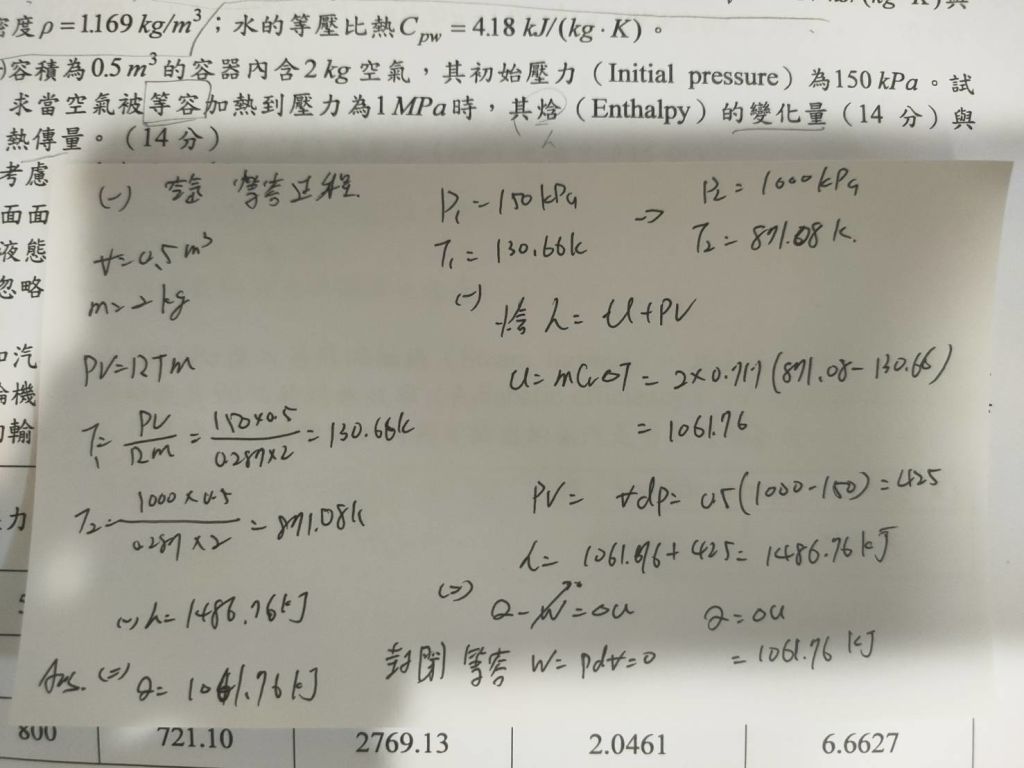 密度ρ=1.169 kg/m³；水的等壓比熱C_pw = 4.18 kJ/(kg·K)。
)容積為0.5 m³的容器內含2 kg空氣，其初始壓力（Initial pressure）為150 kPa。試
求當空氣被等容加熱到壓力為1 MPa時，其焓（Enthalpy）的變化量（14 分）與
熱傳量。（14 分）
考慮
面面
液態
忽略
和汽
輪機
輸
力
(一) 空氣 等容過程
V=0.5m³
m=2kg
PV=RTm
T₁= PV/Rm = 150×0.5/0.287×2 = 130.66k
T₂= 1000×0.5/0.287×2 = 871.08k
(一) h=1486.76kJ
Ans. (二) Q= 1061.76kJ
P₁=150kPa → P₂=1000kPa
T₁=130.66k T₂=871.08k.
(一) 焓 h= U+PV
U=mCvΔT = 2×0.717(871.08-130.66)
= 1061.76
PV= Vdp= 0.5(1000-150)=425
h= 1061.76+425=1486.76kJ
(二) Q-W=ΔU Q=ΔU
封閉 等容 W=pdV=0 =1061.76 kJ
800 721.10 2769.13 2.0461 6.6627